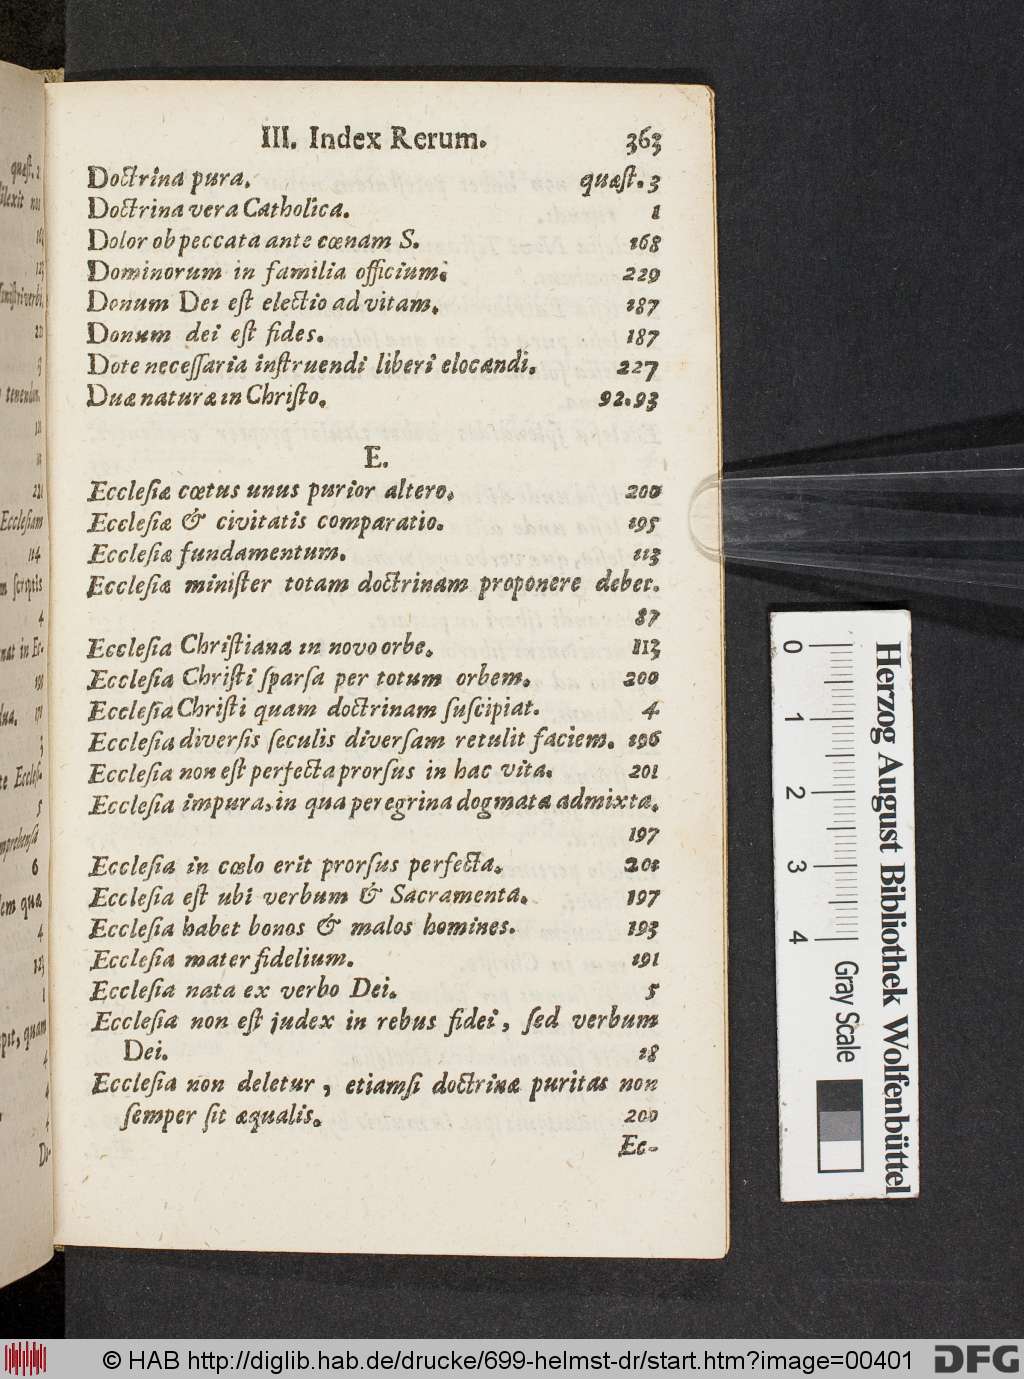 III. Index Rerum. 363
Doctrina pura. quæſt. 3
Doctrina vera Catholica. 1
Dolor ob peccata ante cœnam S. 168
Dominorum in familia officium. 229
Donum Dei eſt electio ad vitam. 187
Donum dei eſt fides. 187
Dote neceſſaria inſtruendi liberi elocandi. 227
Duæ naturæ in Chriſto. 92.93
E.
Eccleſiæ cœtus unus purior altero. 200
Eccleſiæ & civitatis comparatio. 195
Eccleſiæ fundamentum. 113
Eccleſiæ miniſter totam doctrinam proponere debet.
87
Eccleſia Chriſtiana in novo orbe. 113
Eccleſia Chriſti ſparſa per totum orbem. 200
Eccleſia Chriſti quam doctrinam ſuſcipiat. 4
Eccleſia diverſis ſeculis diverſam retulit faciem. 196
Eccleſia non eſt perfecta prorſus in hac vita. 201
Eccleſia impura, in qua peregrina dogmata admixta.
197
Eccleſia in cœlo erit prorſus perfecta. 201
Eccleſia eſt ubi verbum & Sacramenta. 197
Eccleſia habet bonos & malos homines. 193
Eccleſia mater fidelium. 191
Eccleſia nata ex verbo Dei. 5
Eccleſia non eſt judex in rebus fidei, ſed verbum
Dei. 18
Eccleſia non deletur, etiamſi doctrinæ puritas non
ſemper ſit æqualis. 200
Ec-
0 1 2 3 4
Gray Scale
Herzog August Bibliothek Wolfenbüttel
© HAB http://diglib.hab.de/drucke/699-helmst-dr/start.htm?image=00401
DFG